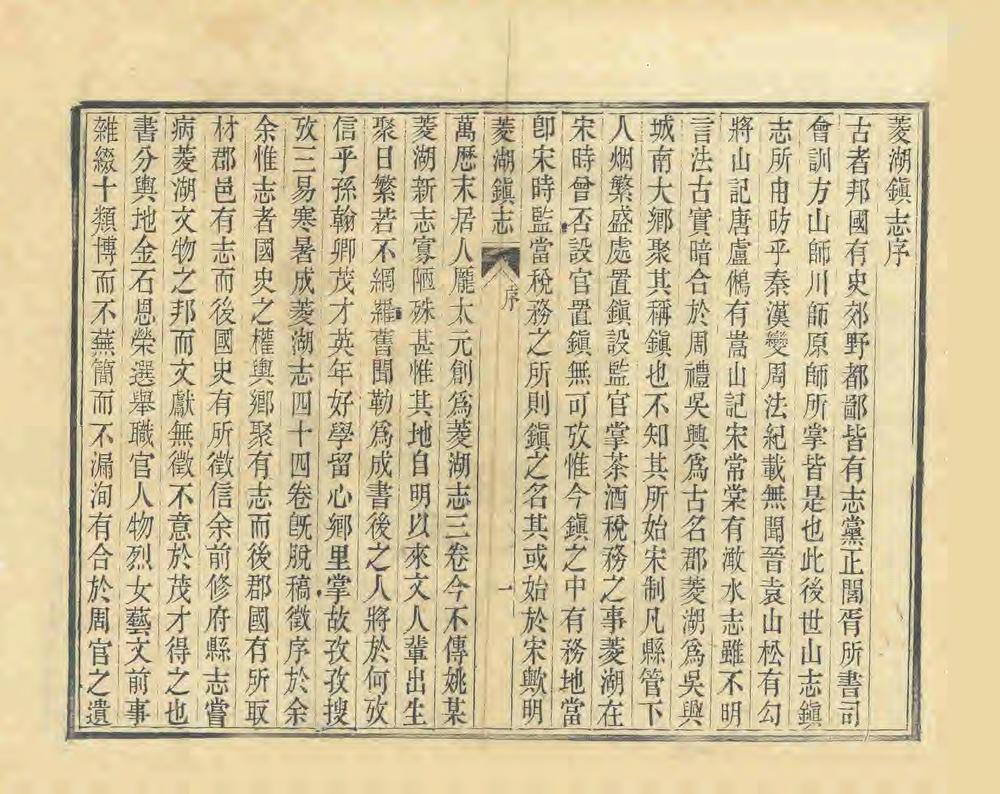 菱湖鎭志序
古者邦國有史郊野都鄙皆有志黨正閭胥所書司
會訓方山師川師原師所掌皆是也此後世山志鎭
志所由昉乎秦漢變周法紀載無聞晉袁山松有勾
將山記唐盧鴻有嵩山記宋常棠有澉水志雖不明
言法古實暗合於周禮吳興爲古名郡菱湖爲吳興
城南大鄉聚其稱鎭也不知其所始宋制凡縣管下
人烟繁盛處置鎭設監官掌茶酒稅務之事菱湖在
宋時曾否設官置鎭無可攷惟今鎭之中有務地當
卽宋時監當稅務之所則鎭之名其或始於宋歟明
菱湖鎭志
序
一
萬厯末居人龎太元創爲菱湖志三卷今不傳姚某
菱湖新志寡陋殊甚惟其地自明以來文人輩出生
聚日繁若不網羅舊聞勒爲成書後之人將於何攷
信乎孫翰卿茂才英年好學留心鄉里掌故孜孜搜
攷三易寒暑成菱湖志四十四卷旣脫稿徵序於余
余惟志者國史之權輿鄉聚有志而後郡國有所取
材郡邑有志而後國史有所徵信余前修府縣志嘗
病菱湖文物之邦而文獻無徵不意於茂才得之也
書分輿地金石恩榮選舉職官人物烈女藝文前事
雜綴十類博而不蕪簡而不漏洵有合於周官之遺